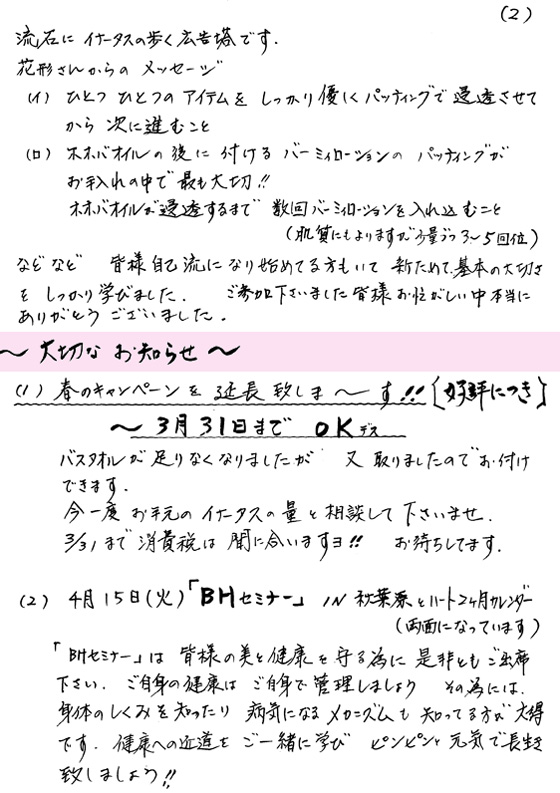 (2)
流石に イオタスの歩く広告塔です.
花形さんからの メッセージ
(イ) ひとつ ひとつの アイテムを しっかり優しくパッティングで 浸透させて
から 次に進むこと
(ロ) ホホバオイル の 後に 付ける バーミィローションの パッティングが
お手入れの中で 最も大切!!
ホホバオイルが浸透するまで 数回バーミィローションを入れ込むこと
(肌質にもよりますが少量づつ3~5回位)
などなど 皆様自己流になり始めてる方もいて 新ためて基本の大切さ
を しっかり学びました. ご参加下さいました皆様お忙がしい中本当に
ありがとう ございました.
~ 大切な お知らせ ~
(1) 春のキャンペーンを 延長致しま ~ す!! [好評につき]
~ 3月31日まで OKデス
バスタオルが足りなくなりましたが 又 取りましたのでお付け
できます.
今一度 お手元の イオタスの量と相談して 下さいませ.
3/31まで 消費税は 間に合いますヨ!! お待ちしてます.
(2) 4月15日(火)「BHセミナー」 IN 秋葉原とハート2ヶ月カレンダー
(両面になっています)
「BHセミナー」は 皆様の美と健康を守る為に 是非ともご出席
下さい. ご自身の健康は ご自身で管理しましょう その為には.
身体のしくみを知ったり 病気になるメカニズムも 知ってる方が大得
です. 健康への近道を ご一緒に学び ピンピンと元気で長生き
致しましょう!!